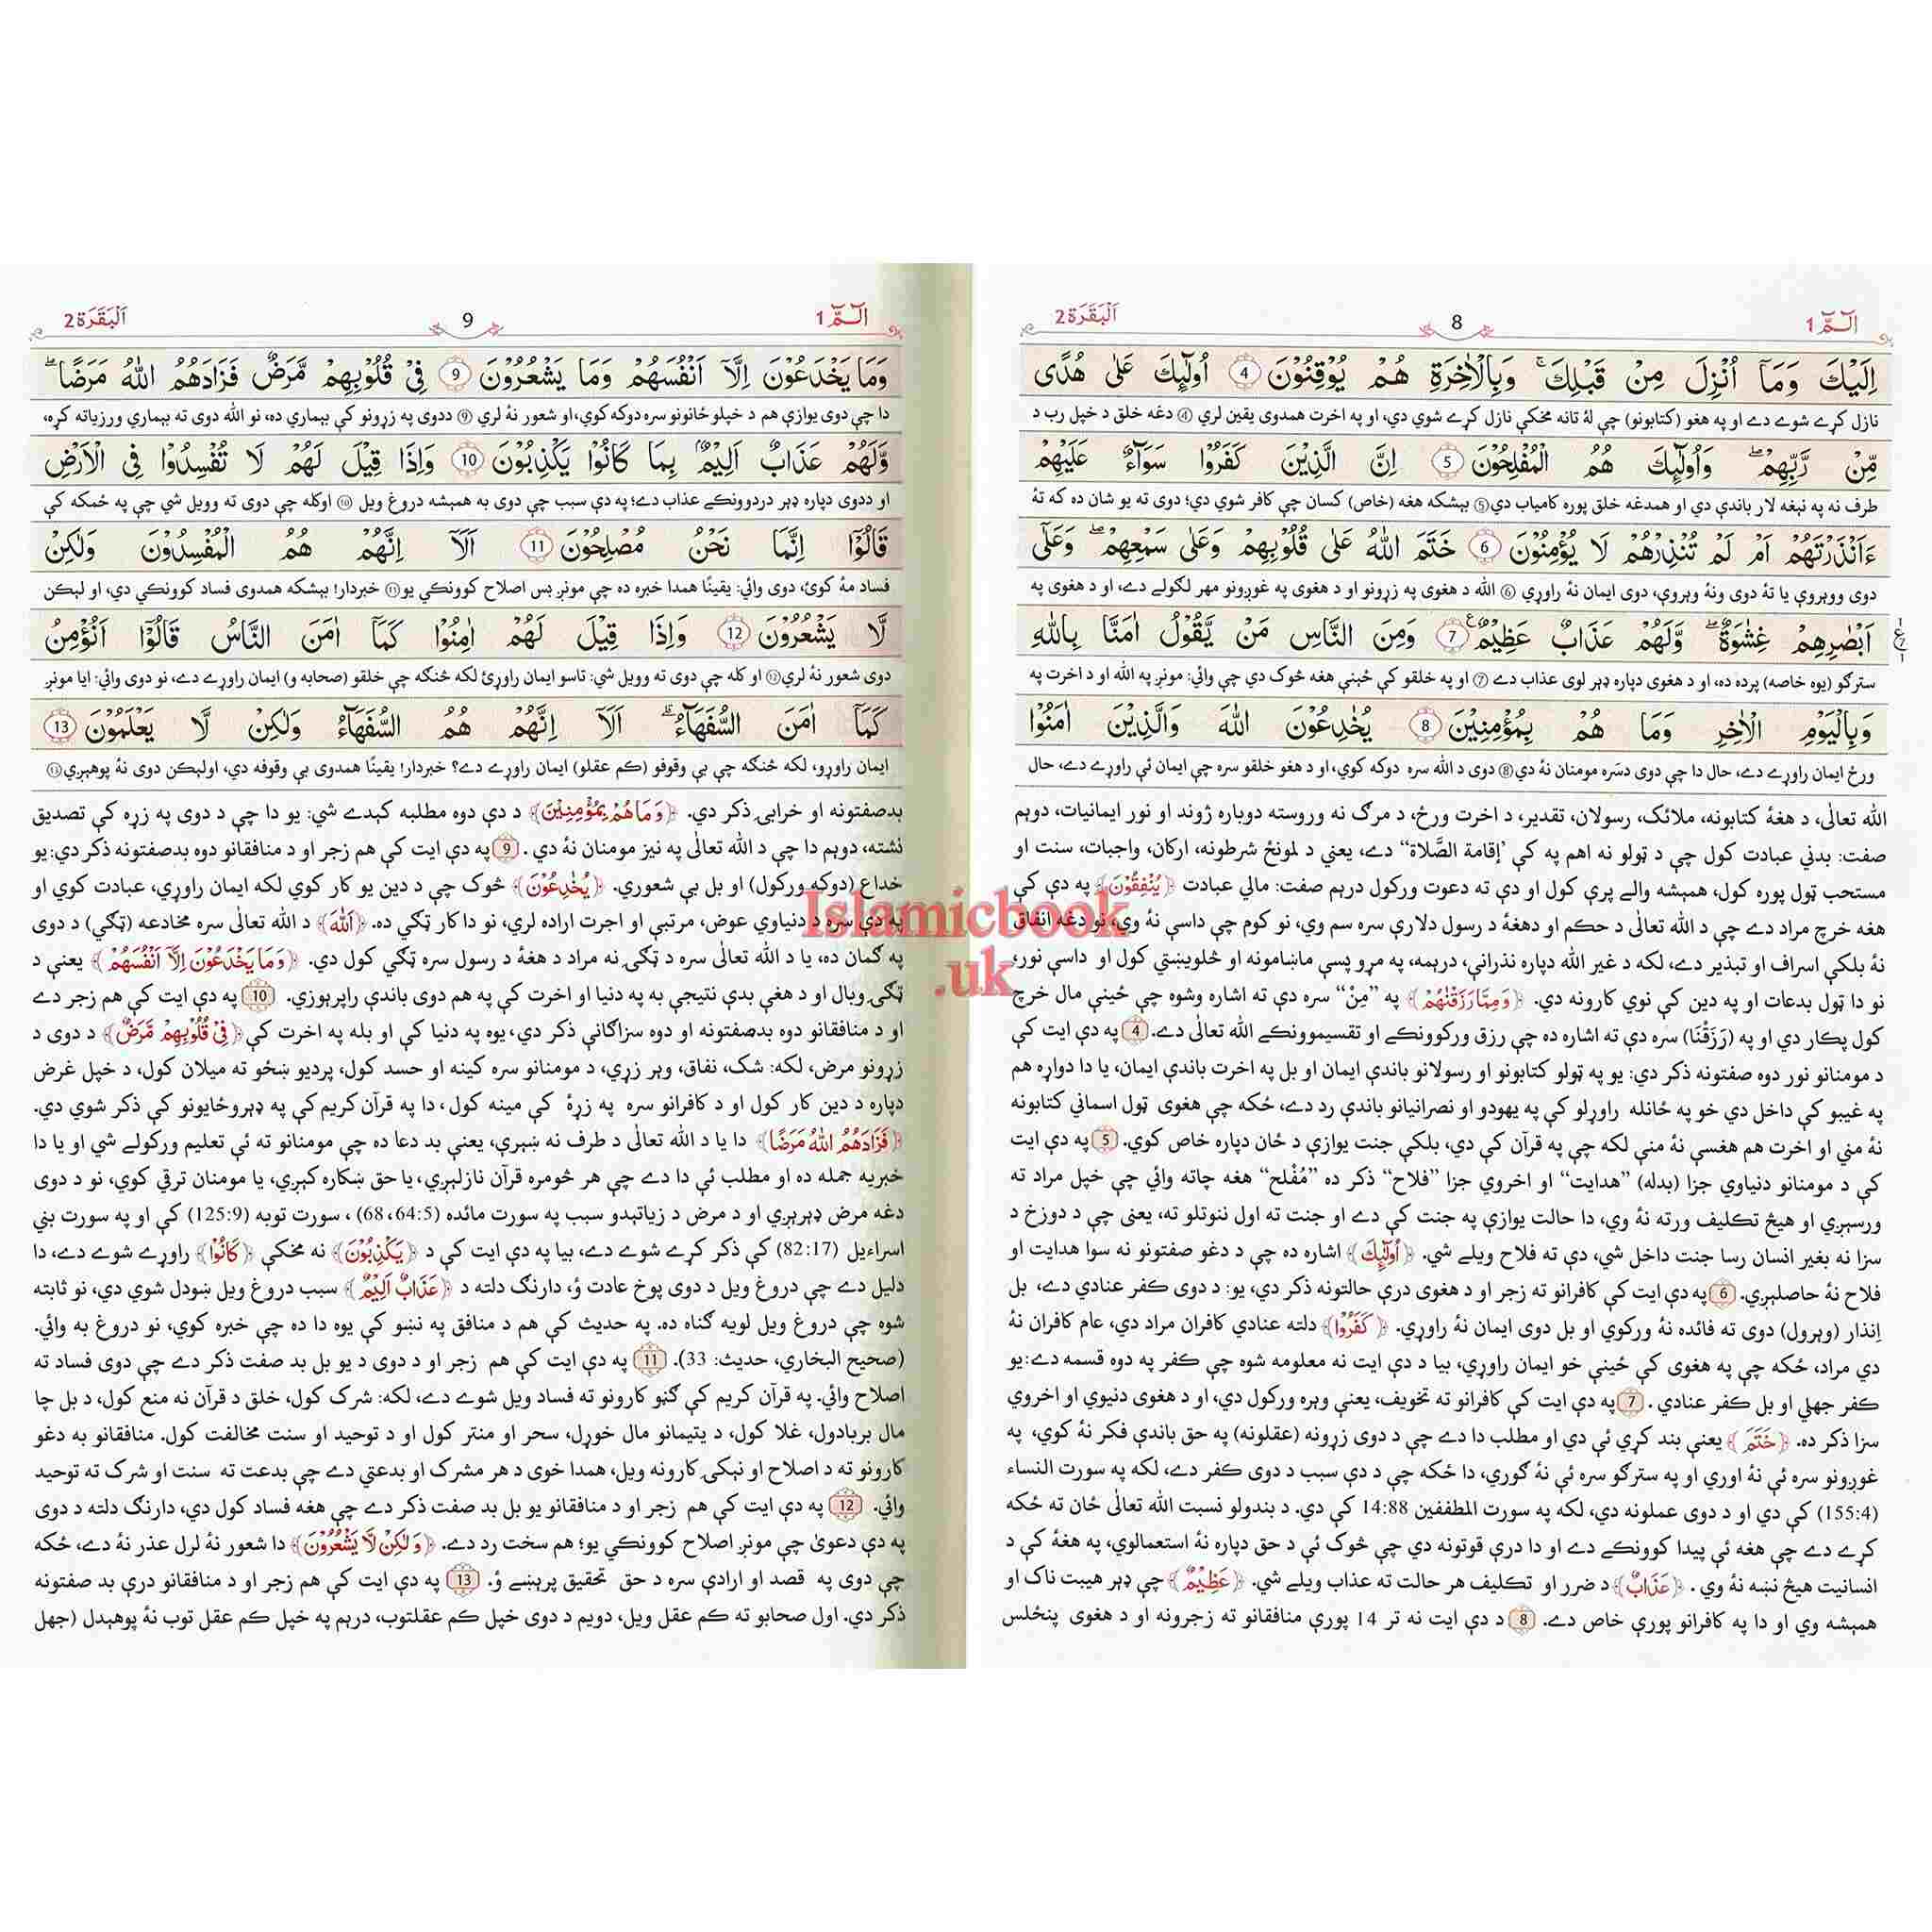 الٓـمّٓ 1
8
اَلْبَقَرَة 2
اِلَيْكَ وَمَآ اُنْزِلَ مِنْ قَبْلِكَ ۚ وَبِالْاٰخِرَةِ هُمْ يُوْقِنُوْنَ 4 اُولٰٓئِكَ عَلٰى هُدًى
نازل کړے شوے دے او په هغو (کتابونو) چې لۀ تانه مخکې نازل کړے شوي دي، او په اخرت همدوی یقین لري ④ دغه خلق د خپل رب د
مِّنْ رَّبِّهِمْ ۖ وَاُولٰٓئِكَ هُمُ الْمُفْلِحُوْنَ 5 اِنَّ الَّذِيْنَ كَفَرُوْا سَوَآءٌ عَلَيْهِمْ
طرف نه په نېغه لار باندې دي او همدغه خلق پوره کامیاب دي ⑤ بېشکه هغه (خاص) کسان چې کافر شوي دي؛ دوی ته یو شان ده که تۀ
ءَاَنْذَرْتَهُمْ اَمْ لَمْ تُنْذِرْهُمْ لَا يُؤْمِنُوْنَ 6 خَتَمَ اللّٰهُ عَلٰى قُلُوْبِهِمْ وَعَلٰى سَمْعِهِمْ ۖ وَعَلٰٓى
دوی ووېروې یا تۀ دوی ونۀ وېروې، دوی ایمان نۀ راوړي ⑥ الله د هغوی په زړونو او د هغوی په غوږونو مهر لګولے دے، او د هغوی په
اَبْصَارِهِمْ غِشٰوَةٌ ۖ وَّلَهُمْ عَذَابٌ عَظِيْمٌ 7 وَمِنَ النَّاسِ مَنْ يَّقُوْلُ اٰمَنَّا بِاللّٰهِ
سترګو (یوه خاصه) پرده ده، او د هغوی دپاره ډېر لوی عذاب دے ⑦ او په خلقو کې ځېنې هغه څوک دي چې وائي: مونږ په الله او د اخرت په
وَبِالْيَوْمِ الْاٰخِرِ وَمَا هُمْ بِمُؤْمِنِيْنَ 8 يُخٰدِعُوْنَ اللّٰهَ وَالَّذِيْنَ اٰمَنُوْا
ورځ ایمان راوړے دے، حال دا چې دوی دسَره مومنان نۀ دي ⑧ دوی د الله سره دوکه کوي، او د هغو خلقو سره چې ایمان ئې راوړے دے، حال
الله تعالٰی، د هغۀ کتابونه، ملائک، رسولان، تقدیر، د اخرت ورځ، د مرګ نه وروسته دوباره ژوند او نور ایمانیات، دویم
صفت: بدني عبادت کول چې د ټولو نه اهم په کې ’إقامة الصَّلاة“ دے، یعني د لمونځ شرطونه، ارکان، واجبات، سنت او
مستحب ټول پوره کول، همېشه والے پرې کول او دې ته دعوت ورکول درېم صفت: مالي عبادت ﴿يُنْفِقُوْنَ﴾ په دې کې
هغه خرچ مراد دے چې د الله تعالٰی د حکم او دهغۀ د رسول دلارې سره سم وي، نو کوم چې داسې نۀ وي، نو دغه انفاق
نۀ بلکې اسراف او تبذیر دے، لکه د غیر الله دپاره نذرانې، درېمه، په مړو پسې ماښامونه او څلوېښتي کول او داسې نور،
نو دا ټول بدعات او په دین کې نوي کارونه دي. ﴿وَمِمَّا رَزَقْنٰهُمْ﴾ په ”مِنْ“ سره دې ته اشاره وشوه چې ځینې مال خرچ
کول پکار دي او په (رَزَقْنَا) سره دې ته اشاره ده چې رزق ورکوونکے او تقسیموونکے الله تعالٰی دے. 4 په دې ایت کې
د مومنانو نور دوه صفتونه ذکر دي: یو په ټولو کتابونو او رسولانو باندې ایمان او بل په اخرت باندې ایمان، یا دا دواړه هم
په غیبو کې داخل دي خو په ځانله راوړلو کې په یهودو او نصرانیانو باندې رد دے، ځکه چې هغوی ټول اسماني کتابونه
نۀ مني او اخرت هم هغسې نۀ مني لکه چې په قرآن کې دي، بلکې جنت یوازې د ځان دپاره خاص کوي. 5 په دې ایت
کې د مومنانو دنیاوي جزا (بدله) ”هدایت“ او اخروي جزا ”فلاح“ ذکر ده ”مُفْلح“ هغه چاته وائي چې خپل مراد ته
ورسېږي او هېڅ تکلیف ورته نۀ وي، دا حالت یوازې په جنت کې دے او جنت ته اول ننوتلو ته، یعنې چې د دوزخ د
سزا نه بغیر انسان رسا جنت داخل شي، دې ته فلاح ویلے شي. ﴿اُولٰٓئِكَ﴾ اشاره ده چې د دغو صفتونو نه سوا هدایت او
فلاح نۀ حاصلېږي. 6 په دې ایت کې کافرانو ته زجر او د هغوی درې حالتونه ذکر دي، یو: د دوی کفر عنادي دے، بل
اِنذار (وېرول) دوی ته فائده نۀ ورکوي او بل دوی ایمان نۀ راوړي. ﴿كَفَرُوْا﴾ دلته عنادي کافران مراد دي، عام کافران نۀ
دي مراد، ځکه چې په هغوی کې ځینې خو ایمان راوړي، بیا د دې ایت نه معلومه شوه چې کفر په دوه قسمه دے: یو
کفر جهلي او بل کفر عنادي . 7 په دې ایت کې کافرانو ته تخویف، یعنې وېره ورکول دي، او د هغوی دنیوي او اخروي
سزا ذکر ده. ﴿خَتَمَ﴾ یعنې بند کړي ئې دي او مطلب دا دے چې د دوی زړونه (عقلونه) په حق باندې فکر نۀ کوي، په
غوږونو سره ئې نۀ اوري او په سترګو سره ئې نۀ ګوري، دا ځکه چې د دې سبب د دوی کفر دے، لکه په سورت النساء
(155:4) کې دي او د دوی عملونه دي، لکه په سورت المطففین 14:88 کې دي. د بندولو نسبت الله تعالٰی ځان ته ځکه
کړے دے چې هغه ئې پیدا کوونکے دے او دا درې قوتونه دي چې څوک ئې د حق دپاره نۀ استعمالوي، په هغۀ کې د
انسانیت هېڅ نښه نۀ وي . ﴿عَذَابٌ﴾ د ضرر او تکلیف هر حالت ته عذاب ویلے شي. ﴿عَظِيْمٌ﴾ چې ډېر هیبت ناک او
همېشه وي او دا په کافرانو پورې خاص دے. 8 د دې ایت نه تر 14 پورې منافقانو ته زجرونه او د هغوی پنځلس
الٓـمّٓ 1
9
اَلْبَقَرَة 2
وَمَا يَخْدَعُوْنَ اِلَّآ اَنْفُسَهُمْ وَمَا يَشْعُرُوْنَ 9 فِيْ قُلُوْبِهِمْ مَّرَضٌ فَزَادَهُمُ اللّٰهُ مَرَضًا ۖ
دا چې دوی یوازې هم د خپلو ځانونو سره دوکه کوي، او شعور نۀ لري ⑨ ددوی په زړونو کې بېماري ده، نو الله دوی ته بېماري ورزیاته کړه،
وَّلَهُمْ عَذَابٌ اَلِيْمٌ بِمَا كَانُوْا يَكْذِبُوْنَ 10 وَاِذَا قِيْلَ لَهُمْ لَا تُفْسِدُوْا فِى الْاَرْضِ
او ددوی دپاره ډېر دردوونکے عذاب دے؛ په دې سبب چې دوی به همېشه دروغ ویل ⑩ اوکله چې دوی ته وویل شي چې په ځمکه کې
قَالُوْٓا اِنَّمَا نَحْنُ مُصْلِحُوْنَ 11 اَلَآ اِنَّهُمْ هُمُ الْمُفْسِدُوْنَ وَلٰكِنْ
فساد مۀ کوئ، دوی وائي: یقینًا همدا خبره ده چې مونږ بس اصلاح کوونکي یو ⑪ خبردار! بېشکه همدوی فساد کوونکي دي، او لېکن
لَّا يَشْعُرُوْنَ 12 وَاِذَا قِيْلَ لَهُمْ اٰمِنُوْا كَمَآ اٰمَنَ النَّاسُ قَالُوْٓا اَنُؤْمِنُ
دوی شعور نۀ لري ⑫ او کله چې دوی ته وویل شي: تاسو ایمان راوړئ لکه څنګه چې خلقو (صحابه و) ایمان راوړے دے، نو دوی وائي: ایا مونږ
كَمَآ اٰمَنَ السُّفَهَآءُ ۗ اَلَآ اِنَّهُمْ هُمُ السُّفَهَآءُ وَلٰكِنْ لَّا يَعْلَمُوْنَ 13
ایمان راوړو، لکه څنګه چې بې وقوفو (کم عقلو) ایمان راوړے دے؟ خبردار! یقینًا همدوی بې وقوفه دي، اولېکن دوی نۀ پوهېږي ⑬
بدصفتونه او خرابۍ ذکر دي. ﴿وَمَا هُمْ بِمُؤْمِنِيْنَ﴾ د دې دوه مطلبه کېدے شي: یو دا چې د دوی په زړه کې تصدیق
نشته، دوېم دا چې د الله تعالٰی په نیز مومنان نۀ دي . 9 په دې ایت کې هم زجر او د منافقانو دوه بدصفتونه ذکر دي: یو
خداع (دوکه ورکول) او بل بې شعوري. ﴿يُخٰدِعُوْنَ﴾ څوک چې د دین یو کار کوي لکه ایمان راوړي، عبادت کوي او
په دې سره د دنیاوي عوض، مرتبې او اجرت اراده لري، نو دا کار ټګي ده. ﴿اللّٰهَ﴾ د الله تعالٰی سره مخادعه (ټګي) د دوی
په ګمان ده، یا د الله تعالٰی سره د ټګۍ نه مراد د هغۀ د رسول سره ټګي کول دي. ﴿وَمَا يَخْدَعُوْنَ اِلَّآ اَنْفُسَهُمْ﴾ یعنې د
ټګۍ وبال او د هغې بدې نتیجې به په دنیا او اخرت کې په هم دوی باندې راپرېوزي. 10 په دې ایت کې هم زجر دے
او د منافقانو دوه بدصفتونه او دوه سزاګانې ذکر دي، یوه په دنیا کې او بله په اخرت کې ﴿فِيْ قُلُوْبِهِمْ مَّرَضٌ﴾ د دوی د
زړونو مرض، لکه: شک، نفاق، وېر زړي، د مومنانو سره کینه او حسد کول، پردیو ښځو ته میلان کول، د خپل غرض
دپاره د دین کار کول او د کافرانو سره په زړۀ کې مینه کول، دا په قرآن کریم کې په ډېروځایونو کې ذکر شوي دي.
﴿فَزَادَهُمُ اللّٰهُ مَرَضًا﴾ دا یا د الله تعالٰی د طرف نه ښېرې، یعنې بد دعا ده چې مومنانو ته ئې تعلیم ورکولے شي او یا دا
خبریه جمله ده او مطلب ئې دا دے چې هر څومره قرآن نازلېږي، یا حق ښکاره کېږي، یا مومنان ترقي کوي، نو د دوی
دغه مرض ډېرېږي او د مرض د زیاتېدو سبب په سورت مائده (64:5، 68) ، سورت توبه (125:9) کې او په سورت بني
اسراءیل (82:17) کې ذکر کړے شوے دے، بیا په دې ایت کې د ﴿يَكْذِبُوْنَ﴾ نه مخکې ﴿كَانُوْا﴾ راوړے شوے دے، دا
دلیل دے چې دروغ ویل د دوی پوخ عادت ؤ، دارنګ دلته د ﴿عَذَابٌ اَلِيْمٌ﴾ سبب دروغ ویل ښودل شوي دي، نو ثابته
شوه چې دروغ ویل لویه ګناه ده. په حدیث کې هم د منافق په نښو کې یوه دا ده چې خبره کوي، نو دروغ به وائي.
(صحیح البخاري، حدیث: 33). 11 په دې ایت کې هم زجر او د دوی د یو بل بد صفت ذکر دے چې دوی فساد ته
اصلاح وائي. په قرآن کریم کې ګڼو کارونو ته فساد ویل شوے دے، لکه: شرک کول، خلق د قرآن نه منع کول، د بل چا
مال بربادول، غلا کول، د یتیمانو مال خوړل، سحر او منتر کول او د توحید او سنت مخالفت کول. منافقانو به دغو
کارونو ته د اصلاح او نېکۍ کارونه ویل، همدا خوی د هر مشرک او بدعتي دے چې بدعت ته سنت او شرک ته توحید
وائي. 12 په دې ایت کې هم زجر او د منافقانو یو بل بد صفت ذکر دے چې هغه فساد کول دي، دارنګ دلته د دوی
په دې دعوٰی چې مونږ اصلاح کوونکي یو؛ هم سخت رد دے. ﴿وَلٰكِنْ لَّا يَشْعُرُوْنَ﴾ دا شعور نۀ لرل عذر نۀ دے، ځکه
چې دوی په قصد او ارادې سره د حق تحقیق پرېښے ؤ. 13 په دې ایت کې هم زجر او د منافقانو درې بد صفتونه
ذکر دي. اول صحابو ته کم عقل ویل، دویم د دوی خپل کم عقلتوب، درېم په خپل کم عقل توب نۀ پوهېدل (جهل
Islamicbook
.uk